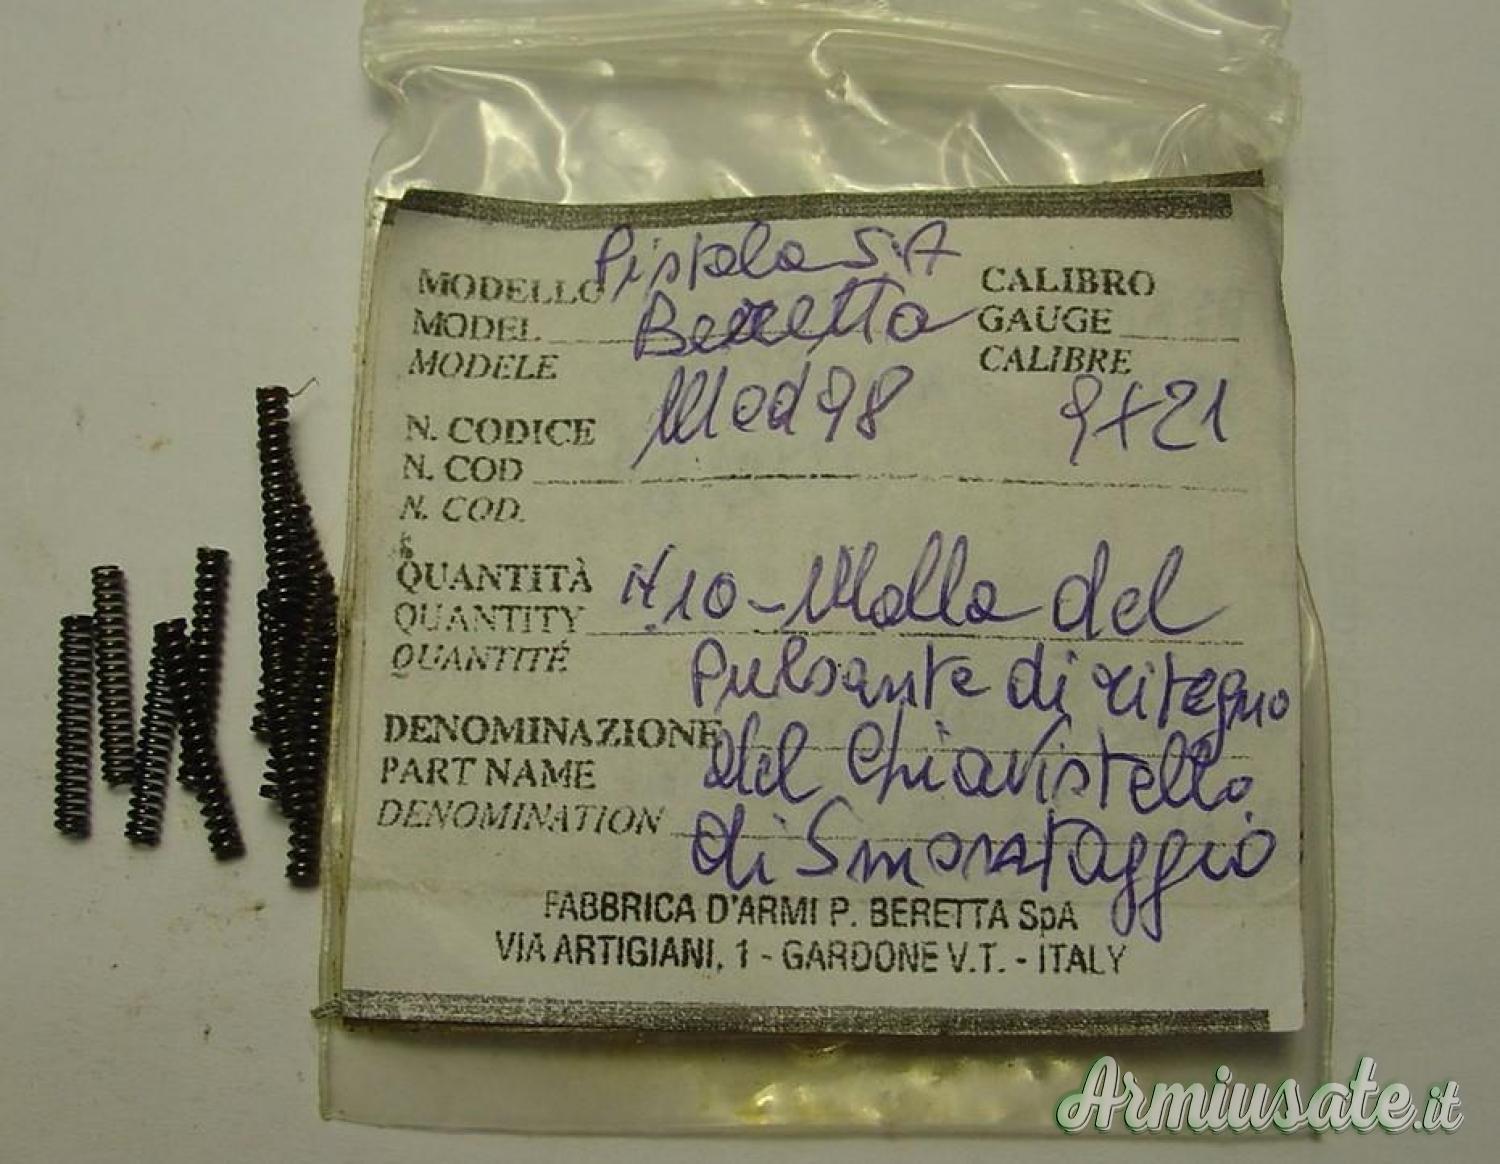 Pistola S.A
MODELLO Beretta CALIBRO
MODEL GAUGE
MODELE CALIBRE
N. CODICE Mod 98 9x21
N. COD
N. COD.
QUANTITÀ N.10 - Molla del
QUANTITY
QUANTITÉ Pulsante di ritegno
DENOMINAZIONE del Chiavistello
PART NAME
DENOMINATION di Smontaggio
FABBRICA D'ARMI P. BERETTA SpA
VIA ARTIGIANI, 1 - GARDONE V.T. - ITALY
Armiusate.it